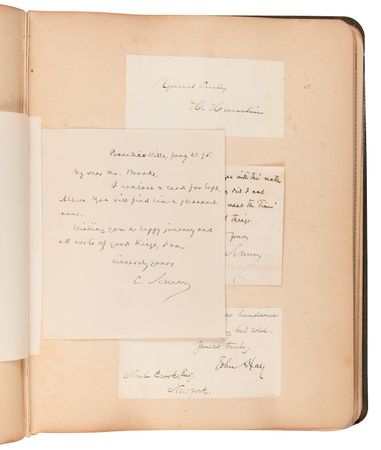 Yours truly
H. Hamlin
Pocantico Hills, Jany 21. 95.
My dear Mr. Brooks,
I enclose a card for Capt.
You will find him a pleasant
man.
Wishing you a happy journey and
all sorts of good things, I am
sincerely yours
C. Schurz
with this matter
did I not
want the Times'
things.
Yours
Schurz
handsome
and cold.
Yours truly
John Hay
Noah Brooks Esq
New York.